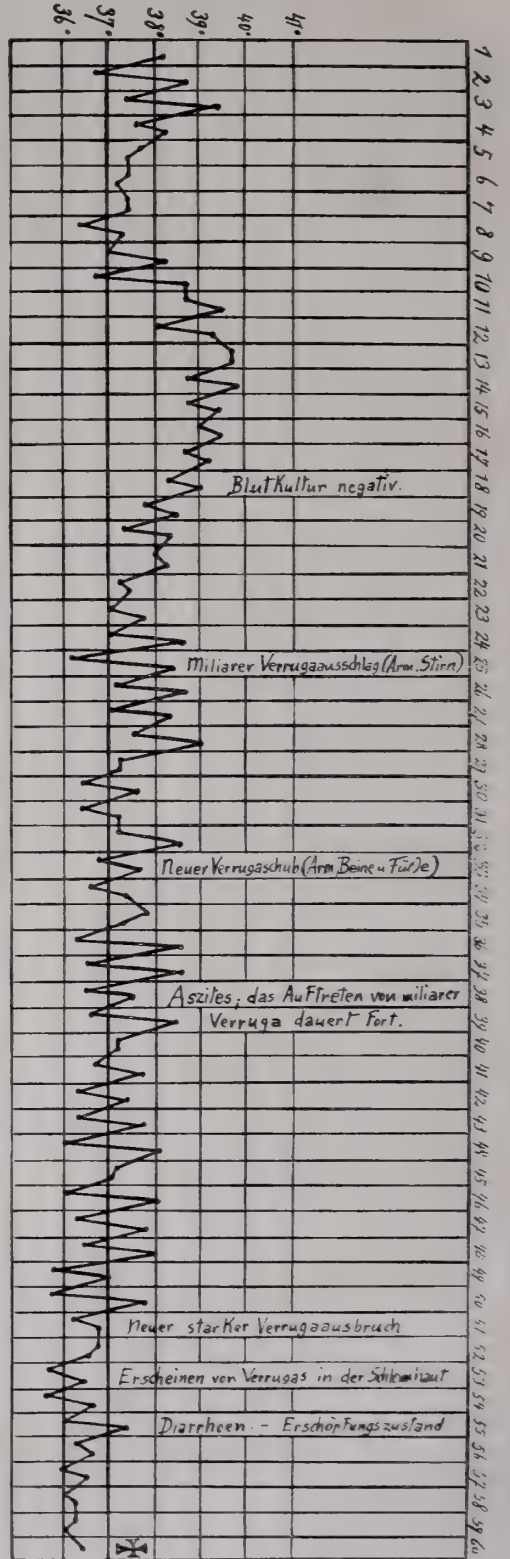 36° 37° 38° 39° 40° 41°
1
2
3
4
5
6
7
8
9
10
11
12
13
14
15
16
17
18
19
20
21
22
23
24
25
26
27
28
29
30
31
35
36
37
38
39
40
41
42
43
44
45
46
47
48
49
50
51
52
53
54
55
56
57
58
59
60
BlutKultur negativ.
Miliarer Verrugaausschlag (Arm. Stirn)
Neuer Verrugaschub (Arm, Beine u Füße)
Aszites; das Auftreten von miliarer
Verruga dauert Fort.
Neuer starker Verrugaausbruch
Erscheinen von Verrugas in der Schleimhaut
Diarrhoen. - Erschöpfungszustand